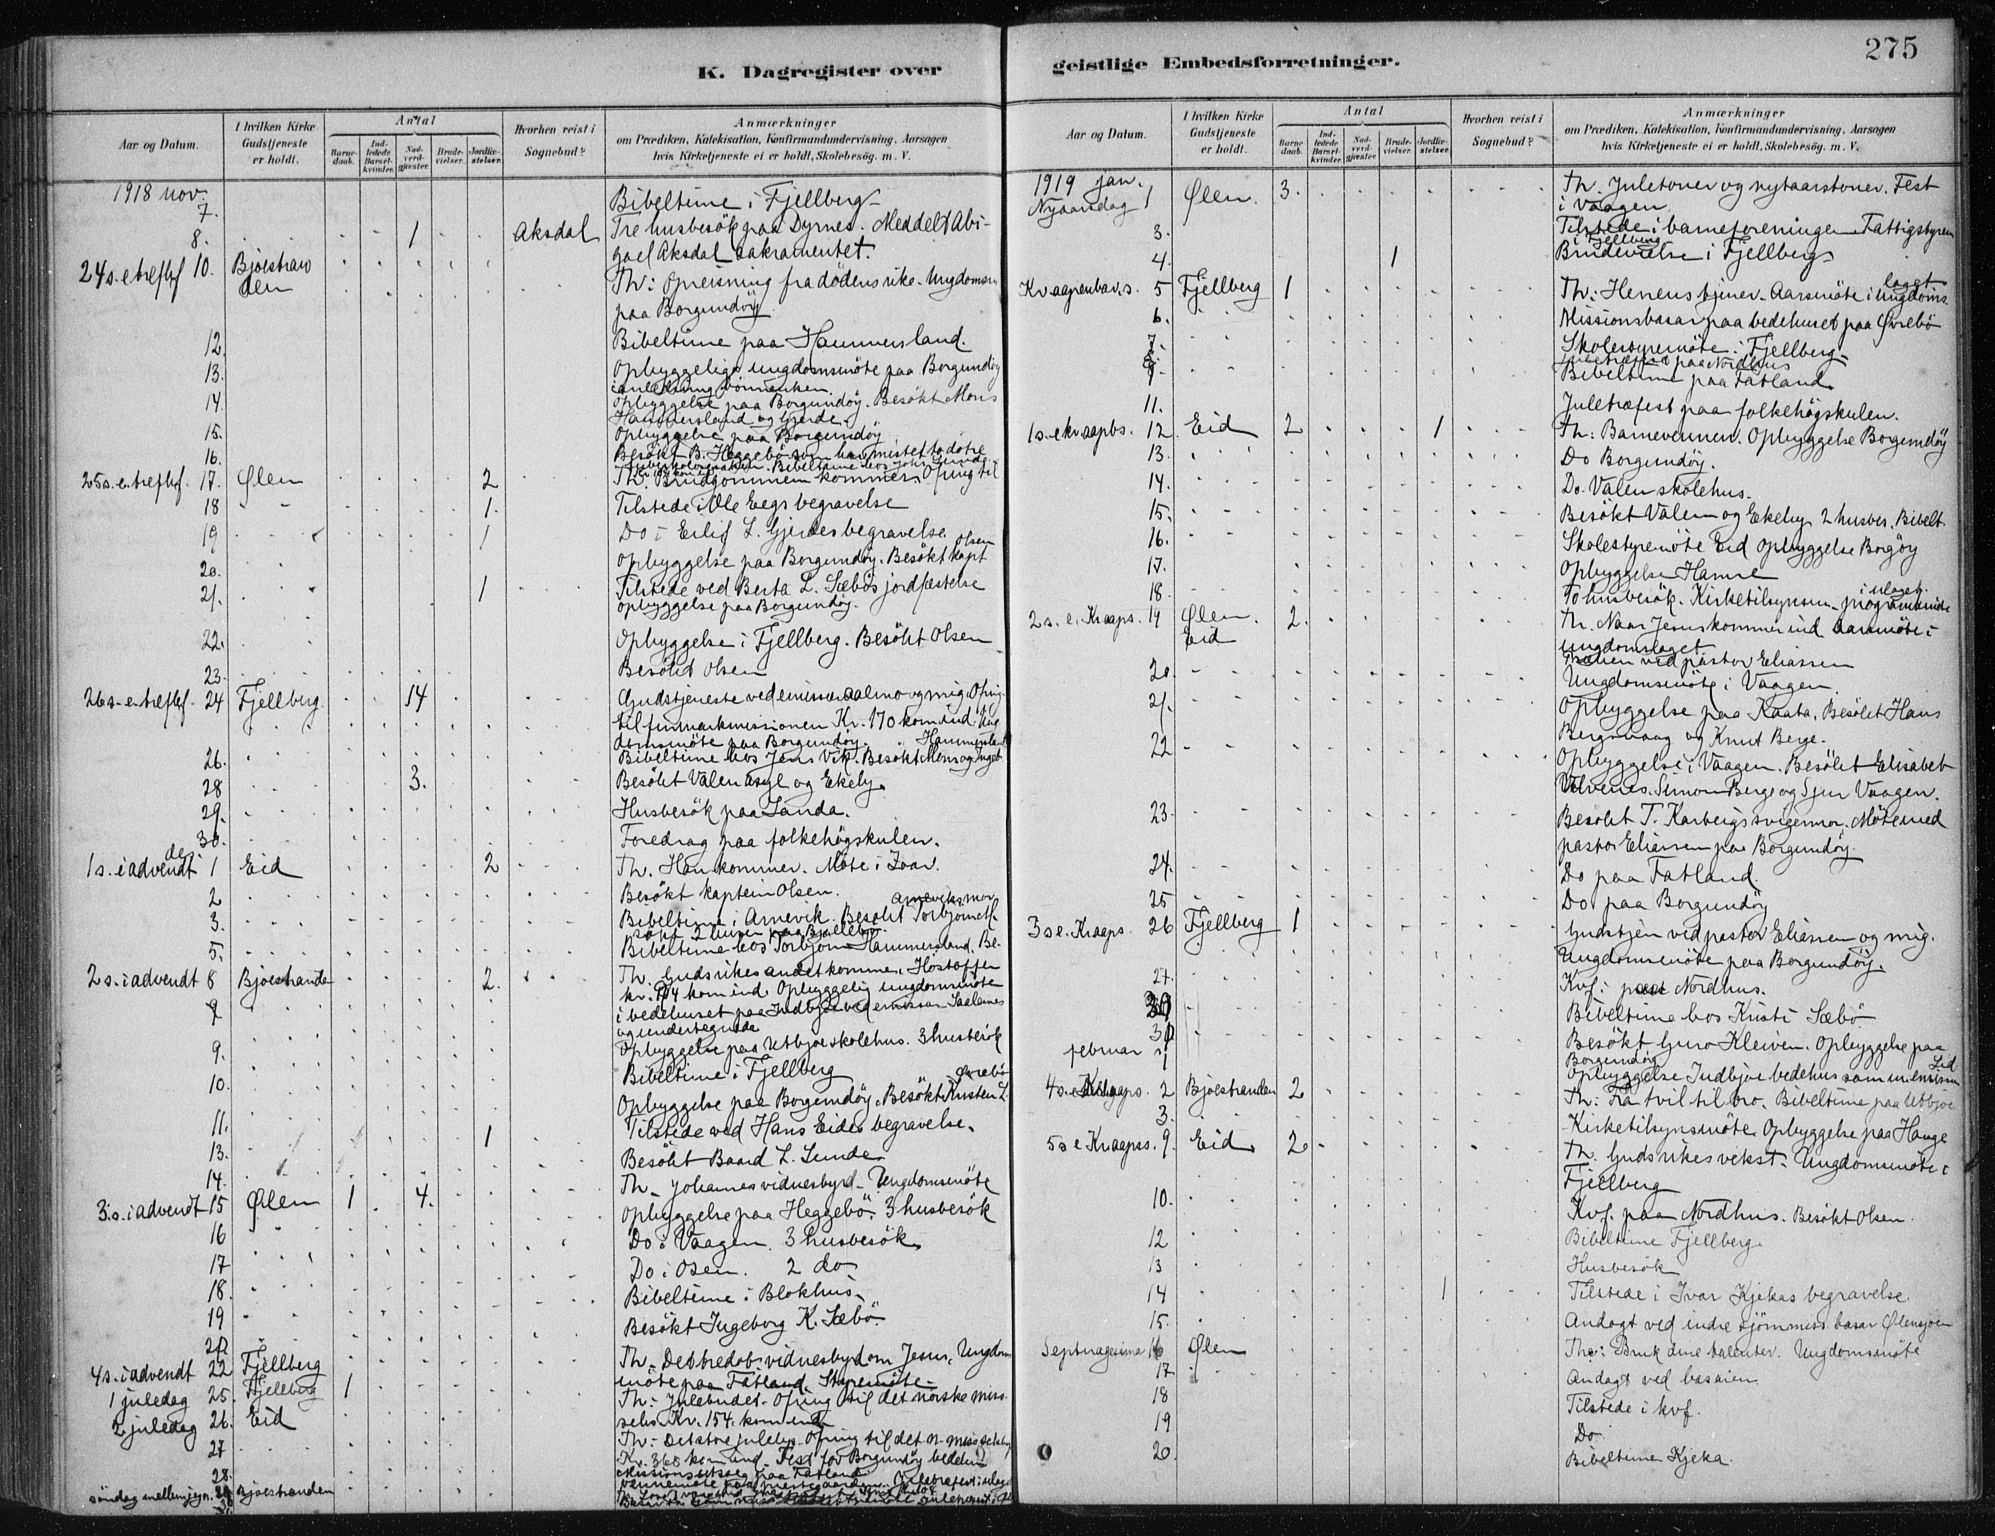 K. Dagregister over
Aar og Datum.
I hvilken Kirke Gudstjeneste er holdt.
Antal
Barnedaab.
Indledede Barselkvinder.
Nadverdgjæster.
Brudevielser.
Jordfæstelser.
Hvorhen reist i Sognebud?
Anmærkninger
om Prædiken, Katekisation, Konfirmandundervisning, Aarsagen
hvis Kirketjeneste ei er holdt, Skolebesøg. m. V.
1918 nov.
7. Bibeltime i Fjellberg
8. 1 Aksdal Tre husbesök paa Dyrnes. Meddelt Abi-
gael Aksdal sakramentet.
24 s.e. trefhf 10. Th: Opreisning fra dödens rike. Ungdomsm
paa Borgundöy.
12. Bibeltime paa Hammersland.
13. Opbyggelig ungdomsmöte paa Borgundöy
14. Opbyggelse paa Borgundöy. Besökt Mons
Hammersland og Gjerde.
15. Opbyggelse paa Borgundöy
16. Besökt B. Heggebö som har mistet to dötre
25 s.e. trefhf. 17. Ølen 2 Th: Brudgommen kommer. Ofring til
18 1. Tilstede i Ole Eegs begravelse
19 1 Do i Erlif L. Gjerdes begravelse.
20. Opbyggelse paa Borgundöy. Besökt kapt Olsen
21. 1 Tilstede ved Berta L. Sæbös jordfæstelse
opbyggelse paa Borgundöy.
22. Opbyggelse i Fjellberg. Besökt Olsen
23. Besökt Olsen
26 s.e. trefhf. 24 Fjellberg 14 Gudstjeneste ved emissær Aalmo og mig. Ofring
til finmarkmissionen Kr. 170 kom ind. Ung
domsmöte paa Borgundöy. Hammersland
26. Bibeltime hos Jens Vik. Besökt Mons og Ingeb.
28 3. Besökt Valen asyl og Ekely.
29. Husbesök paa Sanda.
30. Foredrag paa folkehögskulen.
1 s. i advendt de. 1 Eid 2 Th. Han kommer. Möte i Zoar.
2 Besökt kaptein Olsen.
3. Bibeltime i Arnevik. Besökt Torbjörn
5. Bibeltime hos Torbjörn Hammersland. Be-
2 s. i advendt 8 Bjoestranden 2. Th. Guds rikes andet komme. Höstoffer
kr. 104 kom ind. Opbyggelig ungdomsmöte
i bedehuset paa Indbjoe ved emissær
og undertegnede
9. Opbyggelse paa Utbjoe skolehus. 3 husbesök
Bibeltime i Fjellberg
10. Opbyggelse paa Borgundöy. Besökt Kristen L. Øvrebö
11. 1 Tilstede ved Hans Eides begravelse.
13. Besökt Baard L. Sunde
14.
3. s. i advendt 15 Ølen 1 4. Th. Johannes vidnesbyrd. Ungdomsmöte
16 Opbyggelse paa Heggebö. 3 husbesök
17 Do i Vaagen. 3 husbesök
18. Do i Osen. 2 do
19 Bibeltime i Blokhus
20 Besökt Ingeborg K. Sæbö.
4 s. i advendt 22 Fjellberg Th. Det tredob. vidnesbyrd om Jesus. Ungdoms
möte paa Fatland. Styremöte
1 juledag 25. Fjellberg 1 Th: Julebudet. Ofring til det norske miss
selsk. Kr. 154. kom ind
2 juledag 26. Eid
27
28.
söndag mellem jogn. Bjoestranden
geistlige Embedsforretninger.
275
Aar og Datum.
I hvilken Kirke Gudstjeneste er holdt.
Antal
Barnedaab.
Indledede Barselkvinder.
Nadverdgjæster.
Brudevielser.
Jordfæstelser.
Hvorhen reist i Sognebud?
Anmærkninger
om Prædiken, Katekisation, Konfirmandundervisning, Aarsagen
hvis Kirketjeneste ei er holdt, Skolebesøg. m. V.
1919 jan.
Nyaarsdag 1 Ølen. 3. Th. Juletoner og nytaarstoner. Fest
i Vaagen.
3. Tilstede i barneforeningen Fattigstyrem
i Fjellberg
4. 1 Brudevielse i Fjellberg
Kr. aapenbar.s. 5 Fjellberg 1 Th: Herrens tjener. Aarsmöte i Ungdomslaget
6. Missionsbasar paa bedehuset paa Øvrebö
7. Skolestyremöte i Fjellberg
8. Juletræfest paa Nordhus
9 Bibeltime paa Fatland
11. Juletræfest paa folkehögskulen.
1 s. e kr. aapbs. 12. Eid 2 1 Th: Barnevennen. Opbyggelse Borgundöy
13. Do Borgundöy.
14. Do. Valen skolehus.
15. Besökt Valen og Ekeby. 2 husbes. Bibelt.
16. Skolestyremöte Eid opbyggelse Borgöy
17. Opbyggelse Hamre
18 To husbesök. Kirketilsynsm. programmöte i ulaget.
2 s. e. Kr aaps. 19 Ølen. Eid 2. Th. Naar Jesus kommer ind aarsmöte i
ungdomslaget
20. Ungdomsmöte i Vaagen.
21. Opbyggelse paa Kaata. Besökt Hans
Bergsvaag og Knut Berge.
22 Opbyggelse i Vaagen. Besökt Elisabet
Ulvenes. Simon Berge og Sjur Vaagen.
23. Besökt T. Karbergs svigermor. Möte med
pastor Eliassen paa Borgundöy.
24. Do paa Fatland.
25 Do paa Borgundöy
3 s e. Kr aaps. 26 Fjellberg 1 Gudstjen ved pastor Eliassen og mig.
Ungdomsmöte paa Borgundöy.
27. Kvf: paa Nordhus.
30 Bibeltime hos Kristi Sæbö
Besökt Guro Kleiven. Opbyggelse paa
Borgundöy
februar 1 Opbyggelse Indbjoe bedehus sam m. emissær Lid
4 s. e Kr aaps. 2 Bjoestranden 2 Th: Fra tvil til tro. Bibeltime paa Utbjoe
3. Kirketilsynsmöte. Opbyggelse paa Hauge
5 s e Kr aaps. 9. Eid 2 Th. Guds rikes vekst. Ungdomsmöte i
Fjellberg
10. Kvf. paa Nordhus. Besökt Olsen.
12 Bibeltime Fjellberg
13 Husbesök
14 1 Tilstede i Ivar Kjekas begravelse.
15. Andagt ved indre sjömmiss. basar Ølensjöen
Septuagesima 16 Ølen The: Bruk dine talenter. Ungdomsmöte
17 Andagt ved basaren
18 Tilstede i kvf.
19 Do
20. Bibeltime Kjeka.